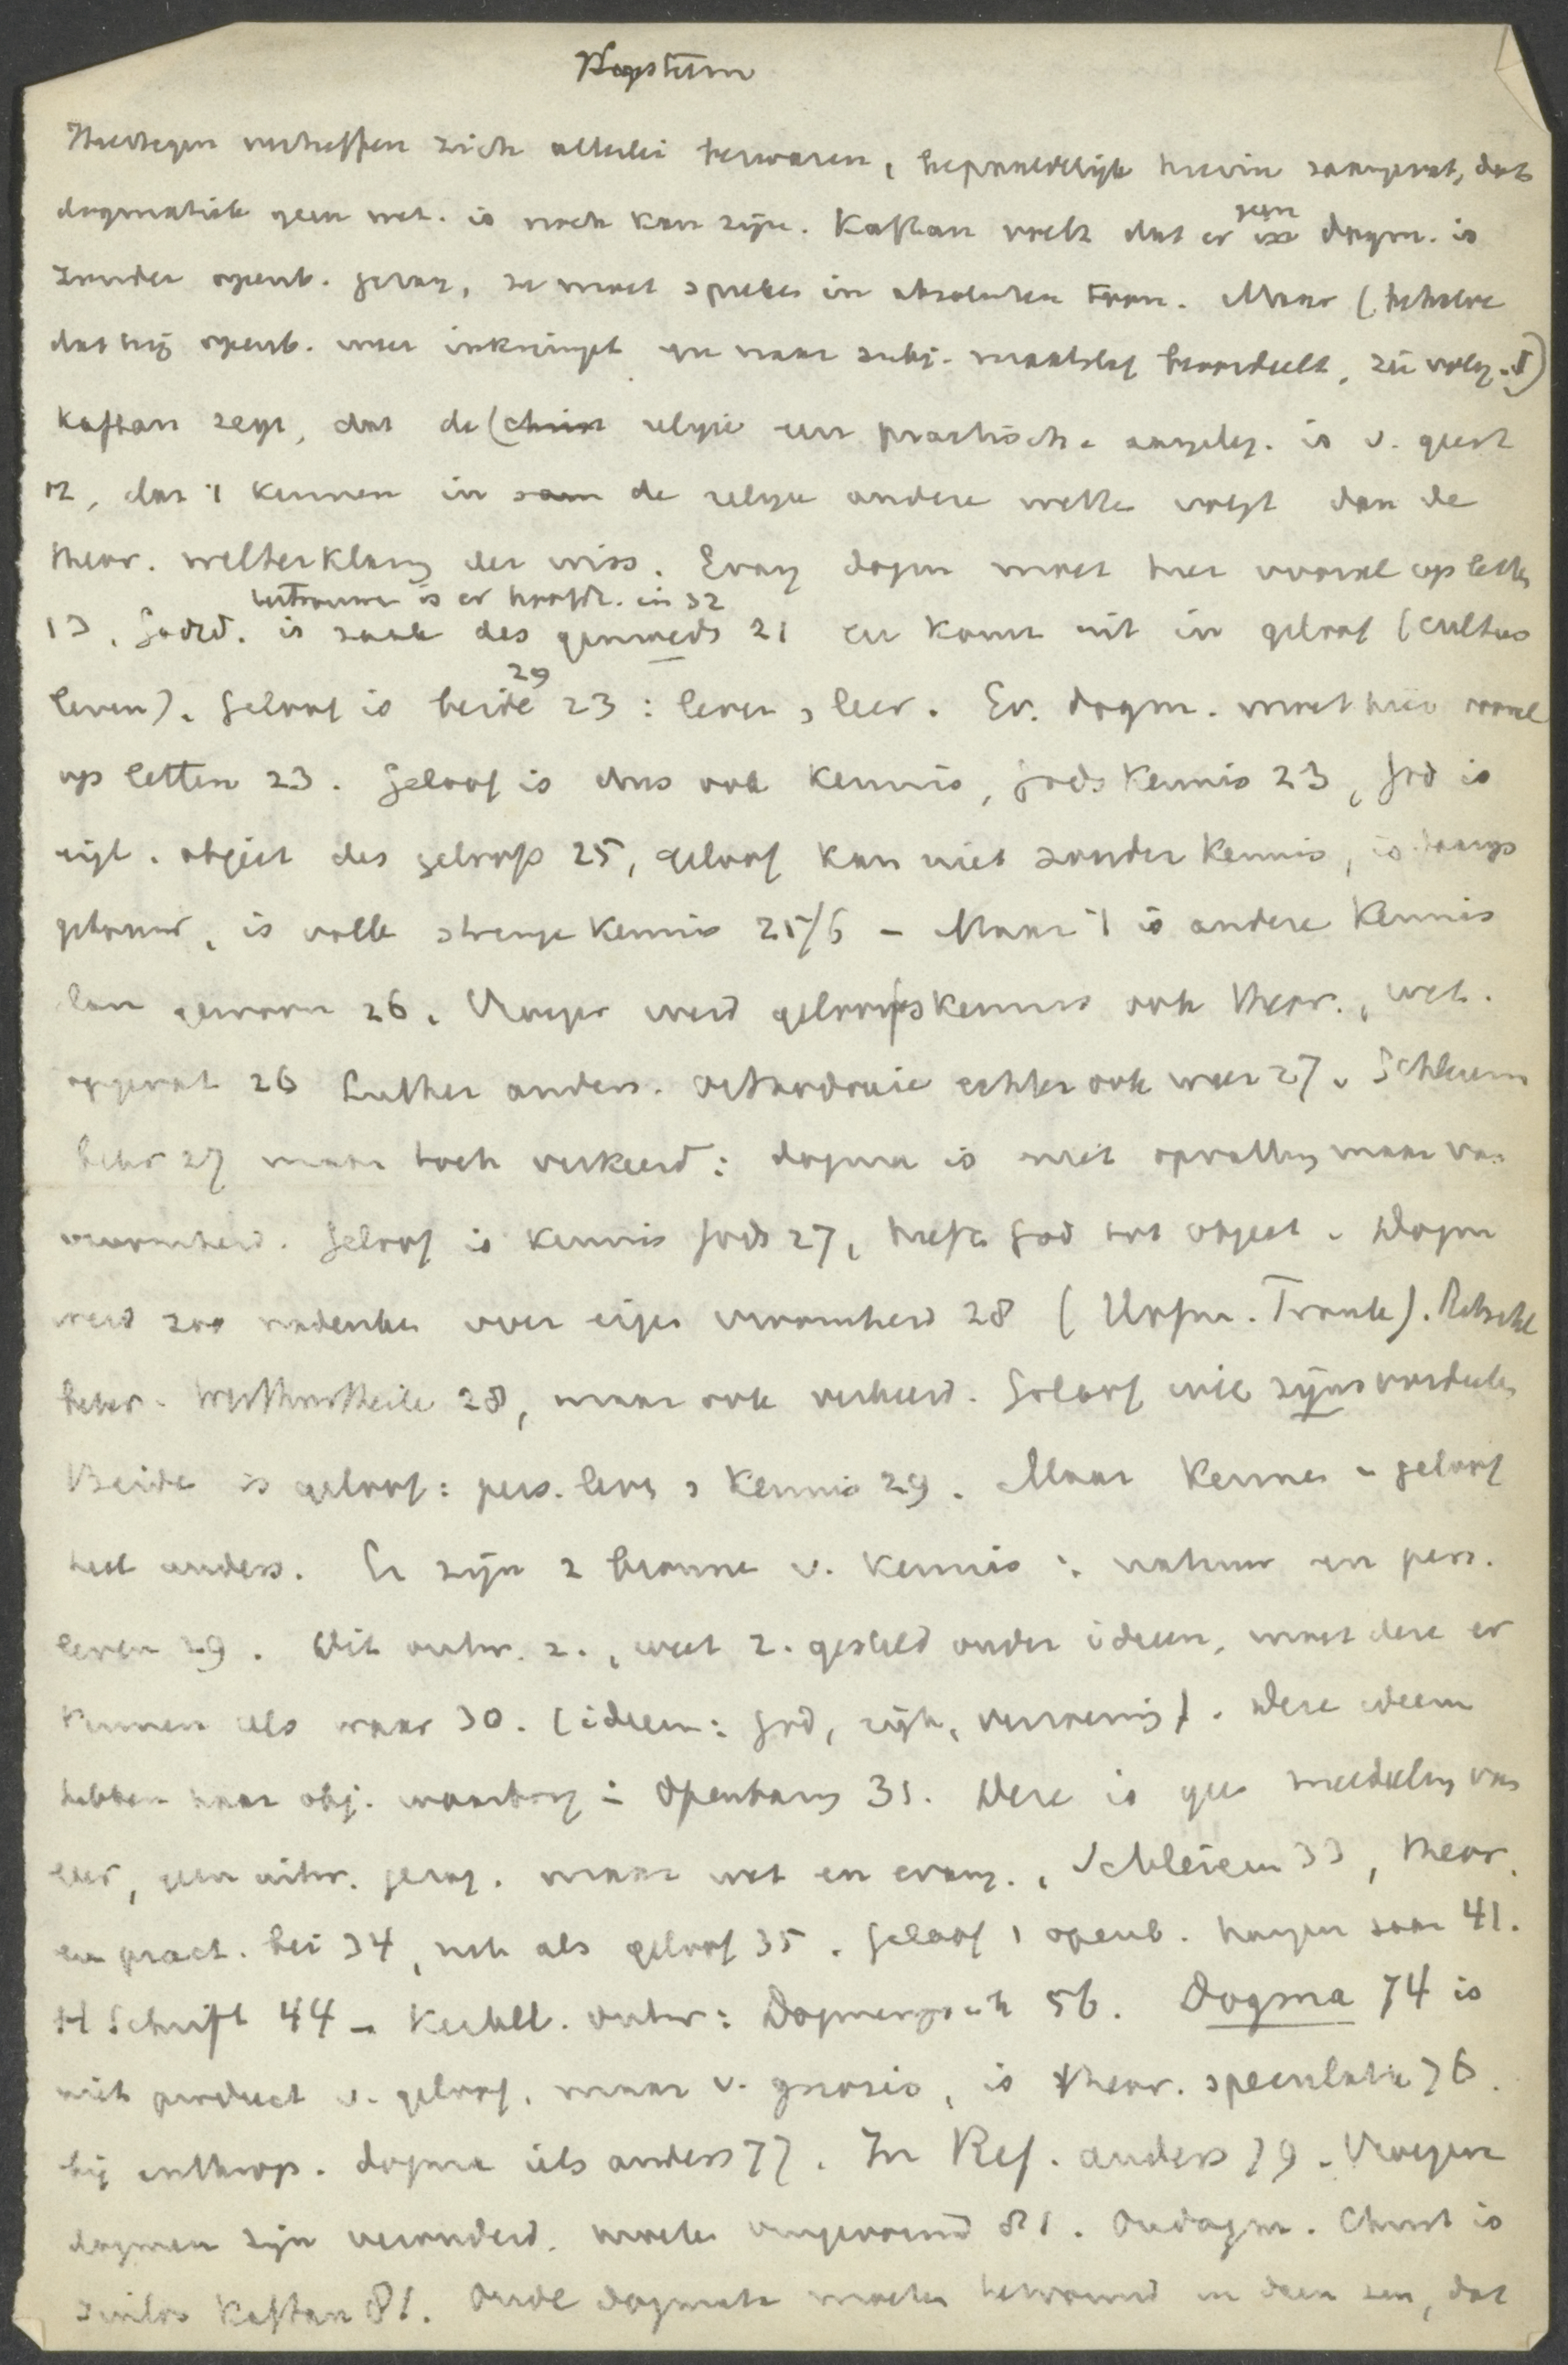 Hiertegen verheffen zich allerlei bezwaren, hoofdzakelijk hierin saamgevat, dat
dogmatiek geen wet. is noch kan zijn. Kaftan voelt dat er geen dogm. is
zonder openb. gezag, ze moet spreken in absoluten toon. Maar (behalve
dat hij openb. weer inkrimpt en naar subj. maatstaf beoordeelt, zie volg.)
Kaftan zegt, dat de (christ religie een practische aangeleg. is v. geest
12, dat 't kennen in de religie andere wetten volgt dan de
theor. welterklärung der wiss. Evang dogm moet hier vooral op letten
vertrouwen is er hoofdz. in 32
13. Godsd. is zaak des gemoeds 21 en komt uit in geloof (cultus
29
leven). Geloof is beide 23: leven, leer. Ev. dogm. moet hier vooral
op letten 23. Geloof is dus ook kennis, Gods kennis 23, God is
eigl. object des geloofs 25, geloof kan niet zonder kennis, is
, is volle strenge kennis 25/6 – Maar 't is andere kennis
dan gewoon 26. Vroeger werd geloofskennis ook theor., wet.
opgevat 26 Luther anders. Orthodoxie echter ook weer 27. Schleierm
beter 27 maar toch verkeerd: dogma is niet opvatting maar van
vroomheid. Geloof is kennis Gods 27, heeft God tot object. Dogm
werd zoo nadenken over eigen vroomheid 28 ( Frank). Ritschl
beter. Werthurtheile 28, maar ook verkeerd. Geloof wil zijnsoordeelen
Beide is geloof: pers. leven, kennis 29. Maar kennen – geloof
heel anders. Er zijn 2 bronnen v. kennis: natuur en pers.
leven 29. Wie ontw. z., weet z. gesteld onder ideeen, moet deze er
kennen als waar 30. (ideeen: God, rijk, verzoening). Deze ideeen
hebben haar obj. waarborg in Openbaring 31. Deze is geen mededeeling van
leer, geen uitw. gezag. maar wet en evang., Schleierm 33, theor.
en pract. bei 34, net als geloof 35. Geloof, openb. hangen saam 41.
H Schrift 44 – Kerkel. ontw: Dogmengesch 56. Dogma 74 is
niet product v. geloof, maar v. gnosis, is theor. speculatie 76.
bij anthrop. dogma iets anders 77. In Ref. anders 79. Vroegere
dogmen zijn veranderd, moeten omgevormd 81. Ondogm. Christ is
zinloos Kaftan 81. Oude dogmata moeten hervormd in dien zin, dat